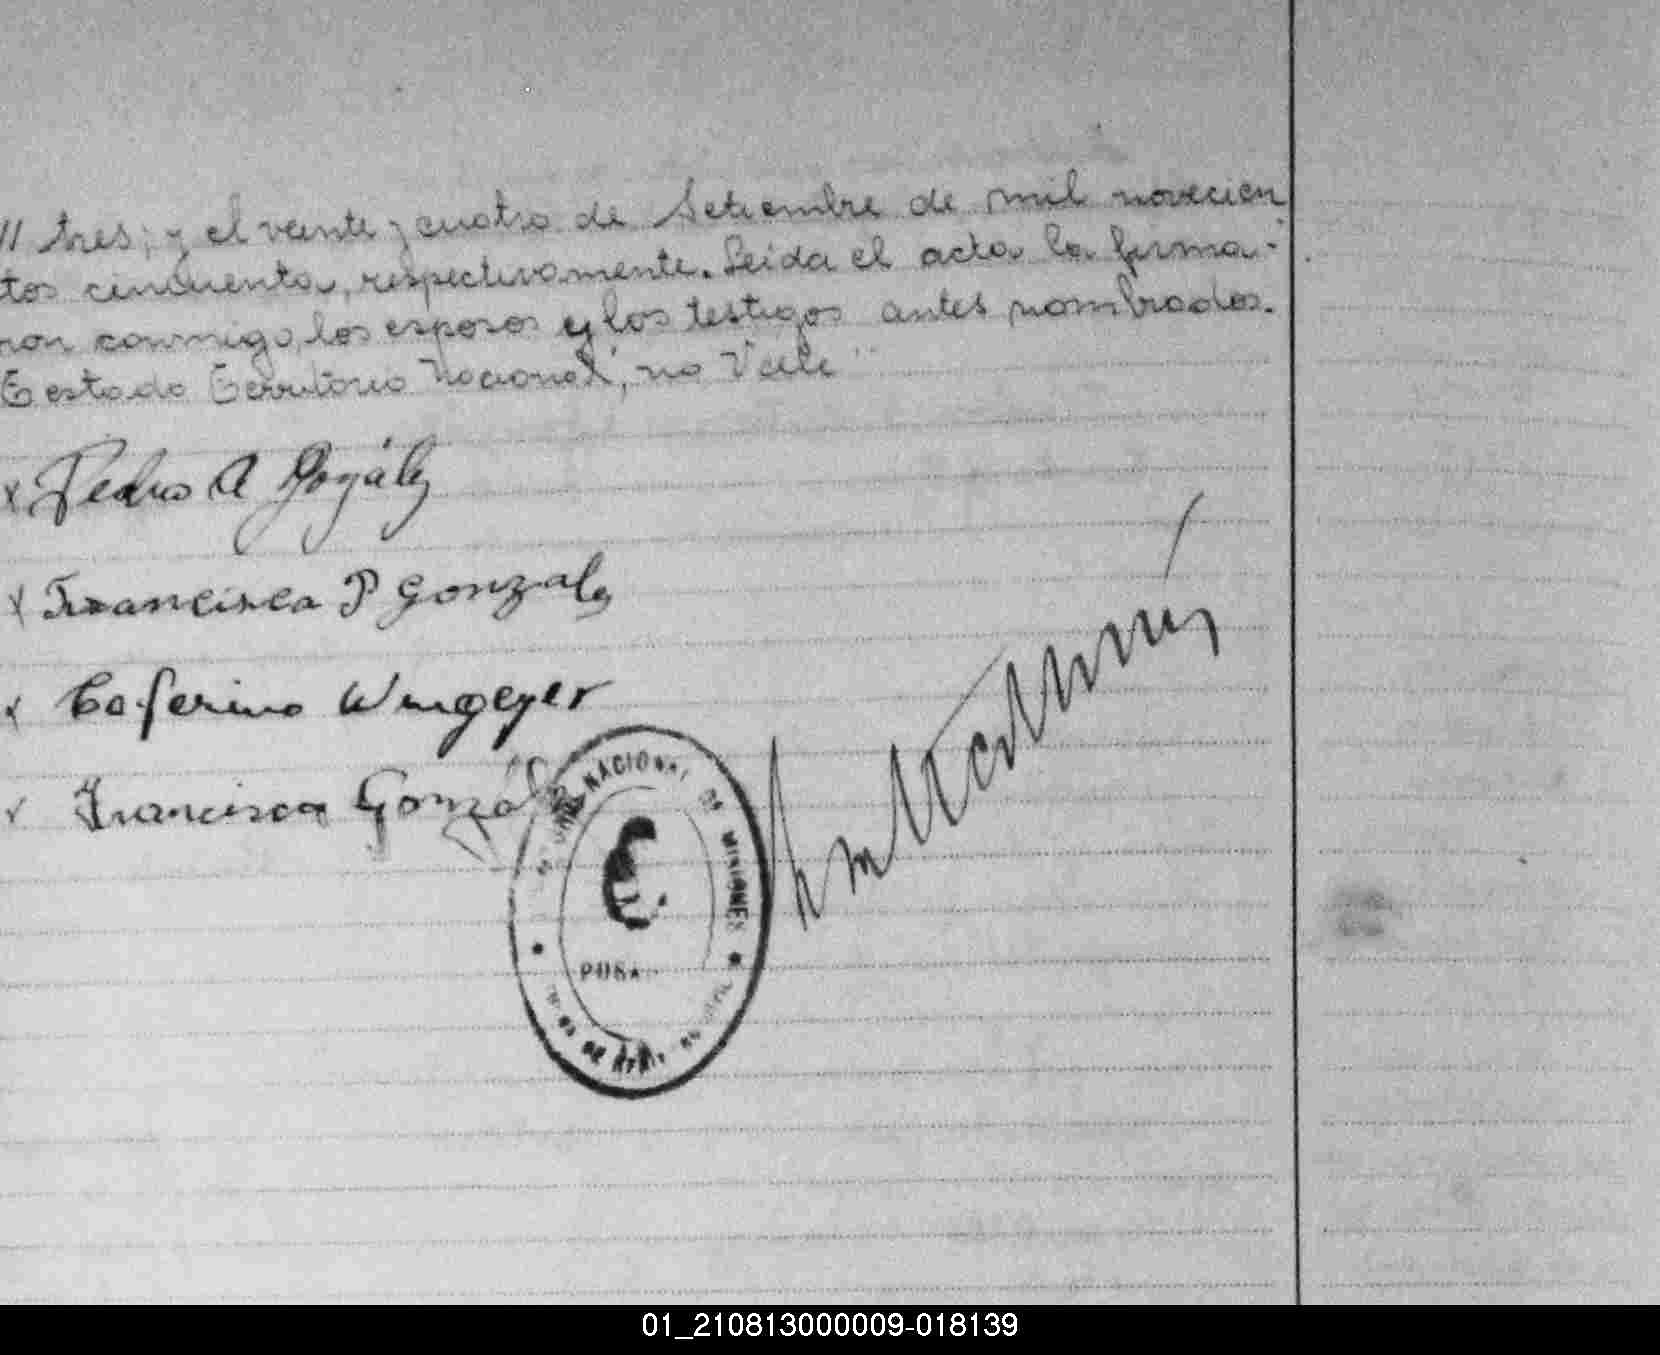 // tres; y el veinte y cuatro de Setiembre de mil novecien
tos cincuenta, respectivamente. Leida el acta la firma-
ron conmigo, los esposos y los testigos antes nombrados.
Testado Territorio Nacional, no Vale
x Pedro A González
x Francisca P Gonzalez
x Ceferino Wingeyer
x Francisca González
NACIONAL DE MISIONES
POSA
01_210813000009-018139